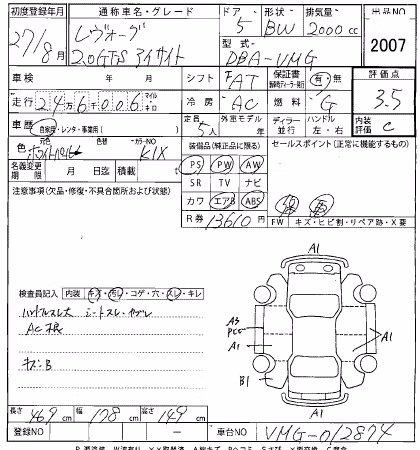 初度登録年月 通称車名・グレード ドア 形状 排気量 出品NO
27/8月 レヴォーグ 5 BW 2000cc 2007
2.0GT-S アイサイト 型式 DBA-VMG
車検 年 月 シフト FAT 保証書 有・無 評価点
走行 24万6千006 マイル キロ 冷房 AC 燃料 G 3.5
車歴 自家用・レンタ・事業用( ) 定員 5人 外車モデル 年 ディーラー 並行 ハンドル 左・右 内装評価 C
色 色替 カラーNO K1X 装備品(純正品に限る) セールスポイント(正常に機能するもの)
名義変更期限 月 日迄 積載 PS PW AW
注意事項(欠品・修復・不具合箇所および状態) SR TV ナビ
カワ エアB ABS
R券 13610円 FW キズ・ヒビ割・リペア跡・X要
A1
検査員記入 内装 キズ・汚れ・コゲ・穴・スレ・キレ
ハンドルスレ大 シートスレ・ヤブレ
A3
AC
PCE
A1 A1
キズ:B B1
A1
長さ 469cm 幅 178cm 高さ 149cm
登録NO ー 車台NO VMG-012874